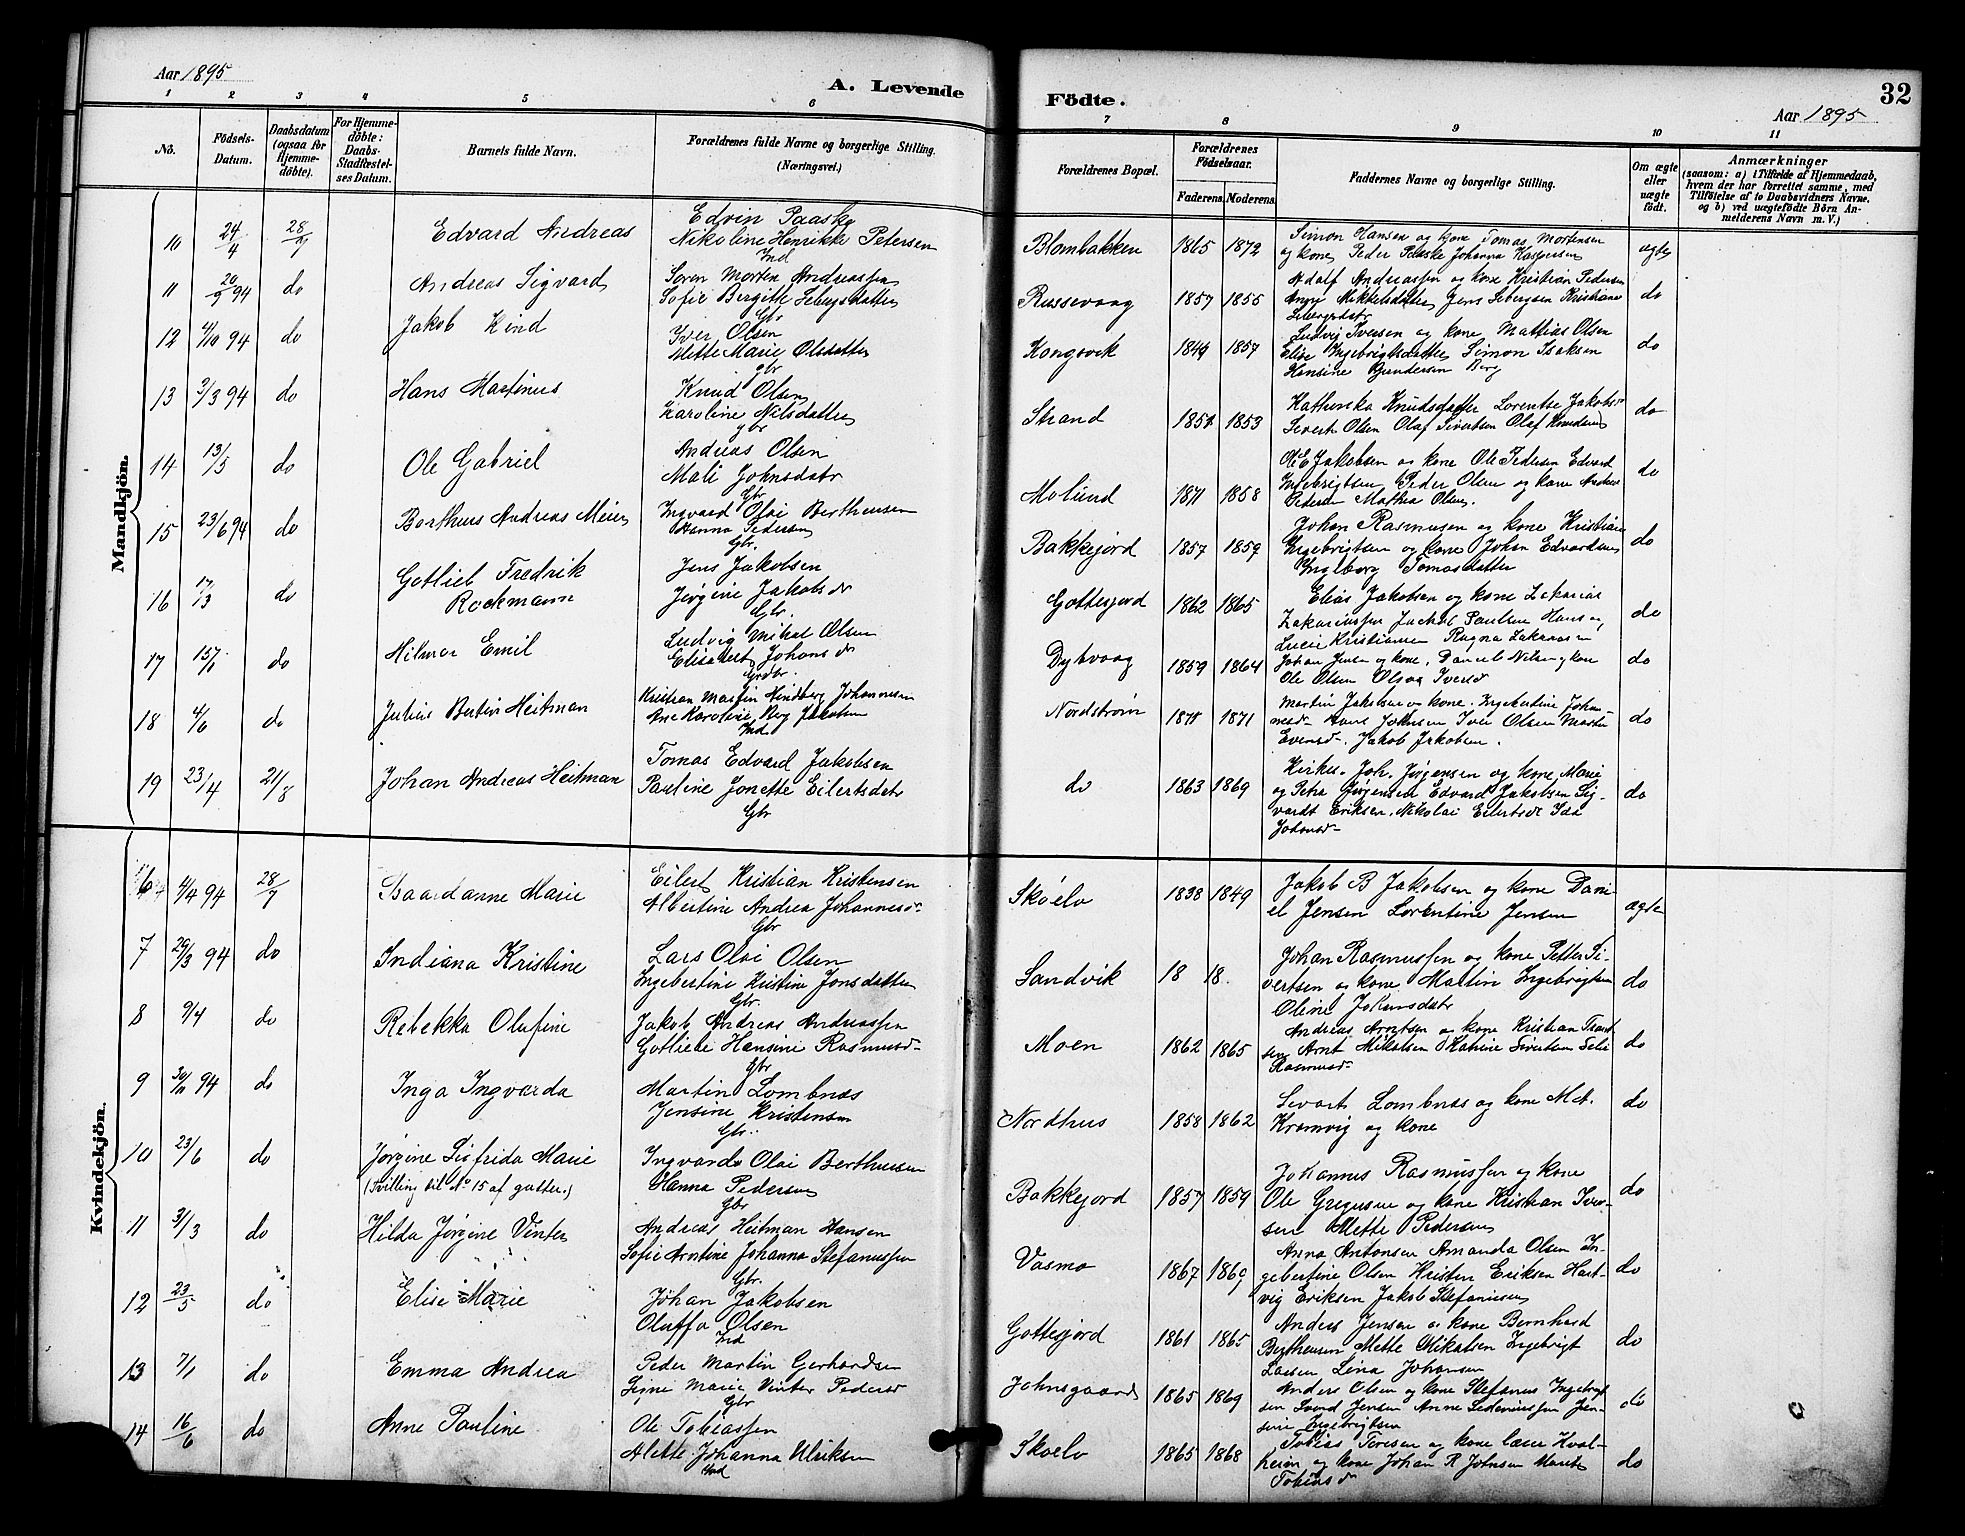 Aar 1895
A. Levende Födte.
32
Aar 1895
1 2 3 4 5 6 7 8 9 10 11
No.
Födsels-Datum.
Daabsdatum (ogsaa for Hjemmedöbte).
For Hjemmedöbte: Daabs-Stadfæstelses Datum.
Barnets fulde Navn.
Forældrenes fulde Navne og borgerlige Stilling. (Næringsvei.)
Forældrenes Bopæl.
Forældrenes Födselsaar.
Faderens. Moderens.
Faddernes Navne og borgerlige Stilling.
Om ægte eller uægte födt.
Anmærkninger
(saasom: a) i Tilfælde af Hjemmedaab, hvem der har forrettet samme, med Tilföielse af to Daabsvidners Navne. og b) ved uægtefödte Börn Anmelderens Navn m. V.)
Mandkjön.
10 24/4 28/7 Edvard Andreas
Edvin Paaske
Nikoline Henrikke Petersen
Ind
Blombakken 1865 1872
Simon Hansen og kone Tomas Mortensen
og kone Peder Paaske Johanna Kaspersen
ægte
11 20/9 94 do Andreas Sigvard
Soren Morten Andreassen
Sofie Bergitte Sebergsdatter
Gbr
Russevaag 1857 1855
Adolf Andreassen og kone Kristian Pedersen
Anne Mikkelsdatter Jens Sebergsen Kristiane
Sebergsdatr
do
12 4/10 94 do Jakob Kind
Iver Olsen
Mette Marie Olsdatter
gbr
Kongsvik 1849 1857
Ludvig Iversen og kone Mathias Olsen
Elise Ingebrigtsdatter Simon Isaksen
Hansine Gundersen Berg
do
13 3/3 94 do Hans Martinus
Knud Olsen
Karoline Nilsdatter
gbr
Strand 1851 1853
Kathinka Knudsdatter Lorentse Jakobs
Sivert Olsen Olaf Sivertsen Olaf Knudsen
do
14 13/5 do Ole Gabriel
Andreas Olsen
Mali Johnsdatr
Gbr
Molund 1871 1858
Ole E Jakobsen og kone Ole Pedersen Edvard
Ingebrigtsen Peder Olsen og kone Andreas
Pedersen Mathea Olsen.
do
15 23/6 94 do Bertheus Andreas Meier
Ingvard Olai Bertheusen
Hanna Pedersen
Gbr.
Bakkejord 1857 1859
Johan Rasmusen og kone Kristian
Ingebrigtsen og kone Johan Edvardsen
Ingeborg Tomasdatter
do
16 17/3 do Gotlieb Fredrik
Rockmann
Jens Jakobsen
Jørgine Jakobsdr
Gbr.
Gottesjord 1862 1865
Elias Jakobsen og kone Zakarias
Zakariassen Jackob Paulsen Hans og
Lucie Kristiansen Ragna
do
17 15/1 do Hilmar Emil
Ludvig Mikal Olsen
Elisabert Johansdr
Grdbr.
Dybvaag 1859 1864
Johan Jensen og kone. Daniel Nilsen og kone
Ole Olsen Olava Iversdr
do
18 4/6 do Julius Bertin Heitman
Kristian Martin Lindberg Johannesen
Ane Karoline Berg Jakobsen
Ind
Nordstrøm 1871 1871
Martin Jakobsen og kone. Ingebertine Johannesd- Hans Johnsen Iver Olsen Marte
Evensd-. Jakob Jakobsen.
do
19 23/4 21/8 Johan Andreas Heitman
Tomas Edvard Jakobsen
Pauline Jonette Eilertsdatr
Gbr
do 1863 1869
Kirkes. Joh. Jørgensen og kone Marie
og Petra Jørgensen Edvard Jakobsen Sig-
vardt Eriksen. Nikolai Eilertsdr Ida
Johansd-
do
Kvindekjön.
6 4/4 94 28/7 Isaardanne Marie
Eilert Kristian Kristensen
Albertine Andrea Johannesdr
Gbr
Skoelv 1838 1849
Jakob B Jakobsen og kone Dani-
el Jensen Lorentine Jensen
ægte
7 29/3 94 do Indiana Kristine
Lars Olai Olsen
Ingebertine Kristine Jonsdatter
Gbr.
Sandvik 18 18.
Johan Rasmussen og kone Petter Si-
vertsen og kone Martin Ingebrigtsen
Oline Johansdatr
do
8 9/4 do Rebekka Olufine
Jakob Andreas Andreassen
Gotliebe Hansine Rasmusd-
Gbr
Moen 1862 1865
Andreas Arntsen og kone Kristian Trondsen Arnt Mikalsen Katrine Sivertsen
Rasmusd-
do
9 30/11 94 do Inga Ingvarda
Martin Lombnæs
Jensine Kristensen
Gbr.
Nordhus 1858 1862
Sivart Lombnæs og kone Met.
Kramvig og kone
do
10 23/6 do Jørgine Sigfrida Marie
(Tvilling til No 15 af gutter.)
Ingvard Olai Bertheusen
Hanna Pedersen
Gbr
Bakkejord 1857 1859
Johannes Rasmussen og kone
Ole Gregusen og kone Kristian Iver-
sen Mette Pedersen
do
11 31/3 do Hilda Jørgine Vinter
Andreas Heitman Hansen
Sofie Arntine Johanna Stefanussen
Gbr.
Vasmo 1867 1869
Anna Antonsen Amanda Olsen In-
gebertine Olsen Kristen Eriksen Hart-
vig Eriksen Jakob Stefanusen
do
12 23/5 do Elise Marie
Johan Jakobsen
Oluffa Olsen
Ind
Gottesjord 1861 1865
Anders Jensen og kone Bernhard
Bertheusen Mette Mikalsen Ingebrigt
Larsen Lina Johansen
do
13 7/1 do Emma Andrea
Peder Martin Gerhardsen
Signe Marie Vinter Pedersd
Gbr
Johnsgaard 1865 1869
Anders Olsen og kone Stefanus Ingebrigt-
sen Svend Jensen Anne Sedeniussen Jen-
sine Ingebrigtsen
do
14 16/6 do Anne Pauline
Ole Tobiassen
Alette Johanna Ulriksen
Ind
Skoelv 1865 1868
Tobias Toresen og kone Lærer Kval-
heim og kone Johan R Johnsen Marit
Tobiasdr
do